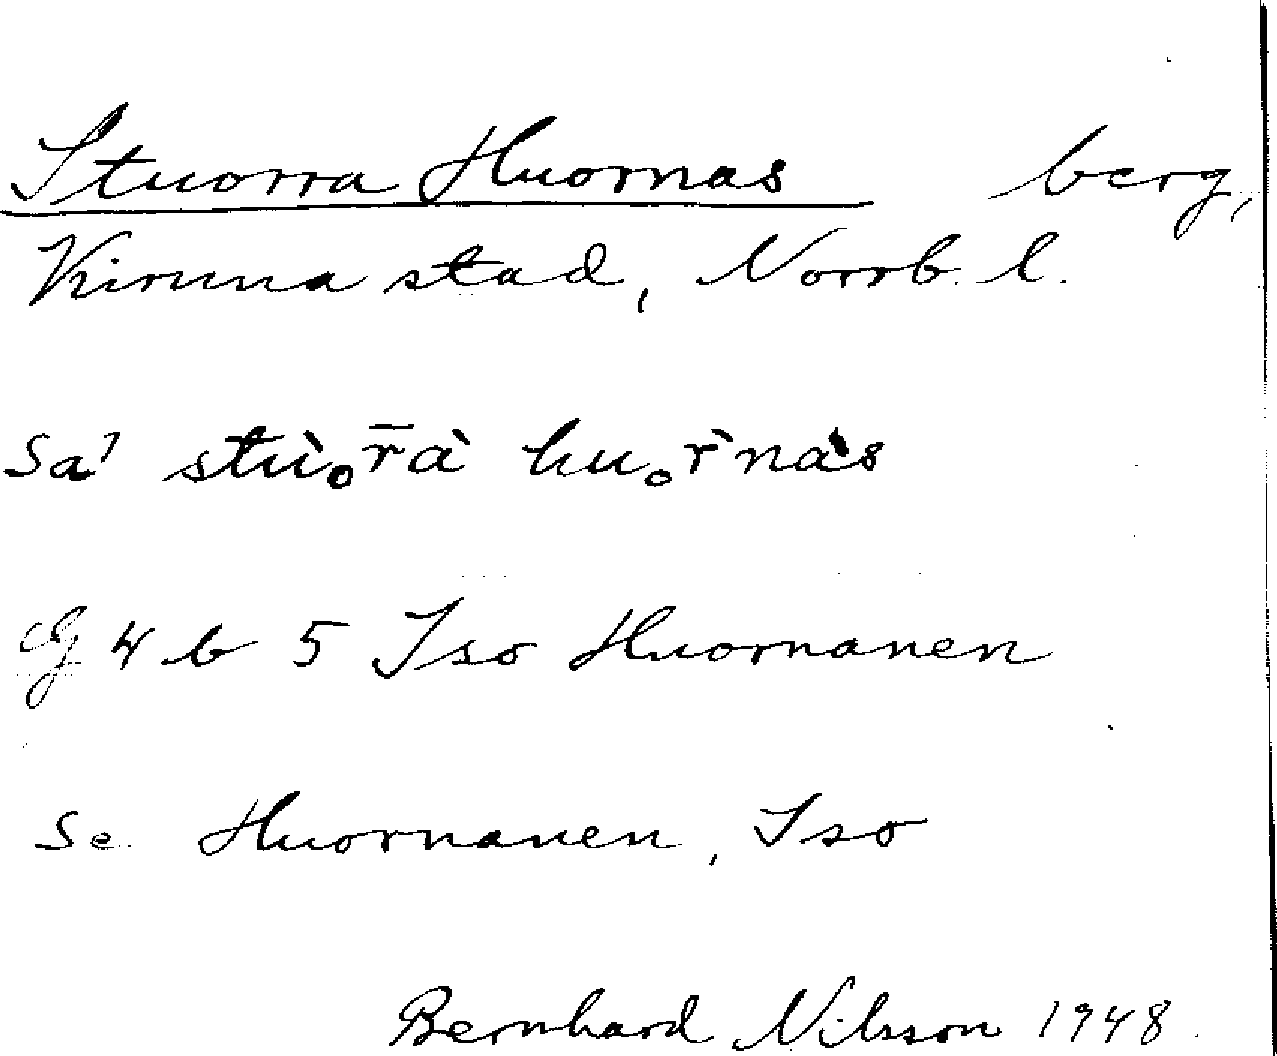 Stuorra Huornas berg,
Kiruna stad, Norrb. l.
Sa' stù̥ₒr̄à huₒr̀nàs
G 4 b 5 Iso Huornanen
Se Huornanen, Iso
Bernhard Nilsson 1948